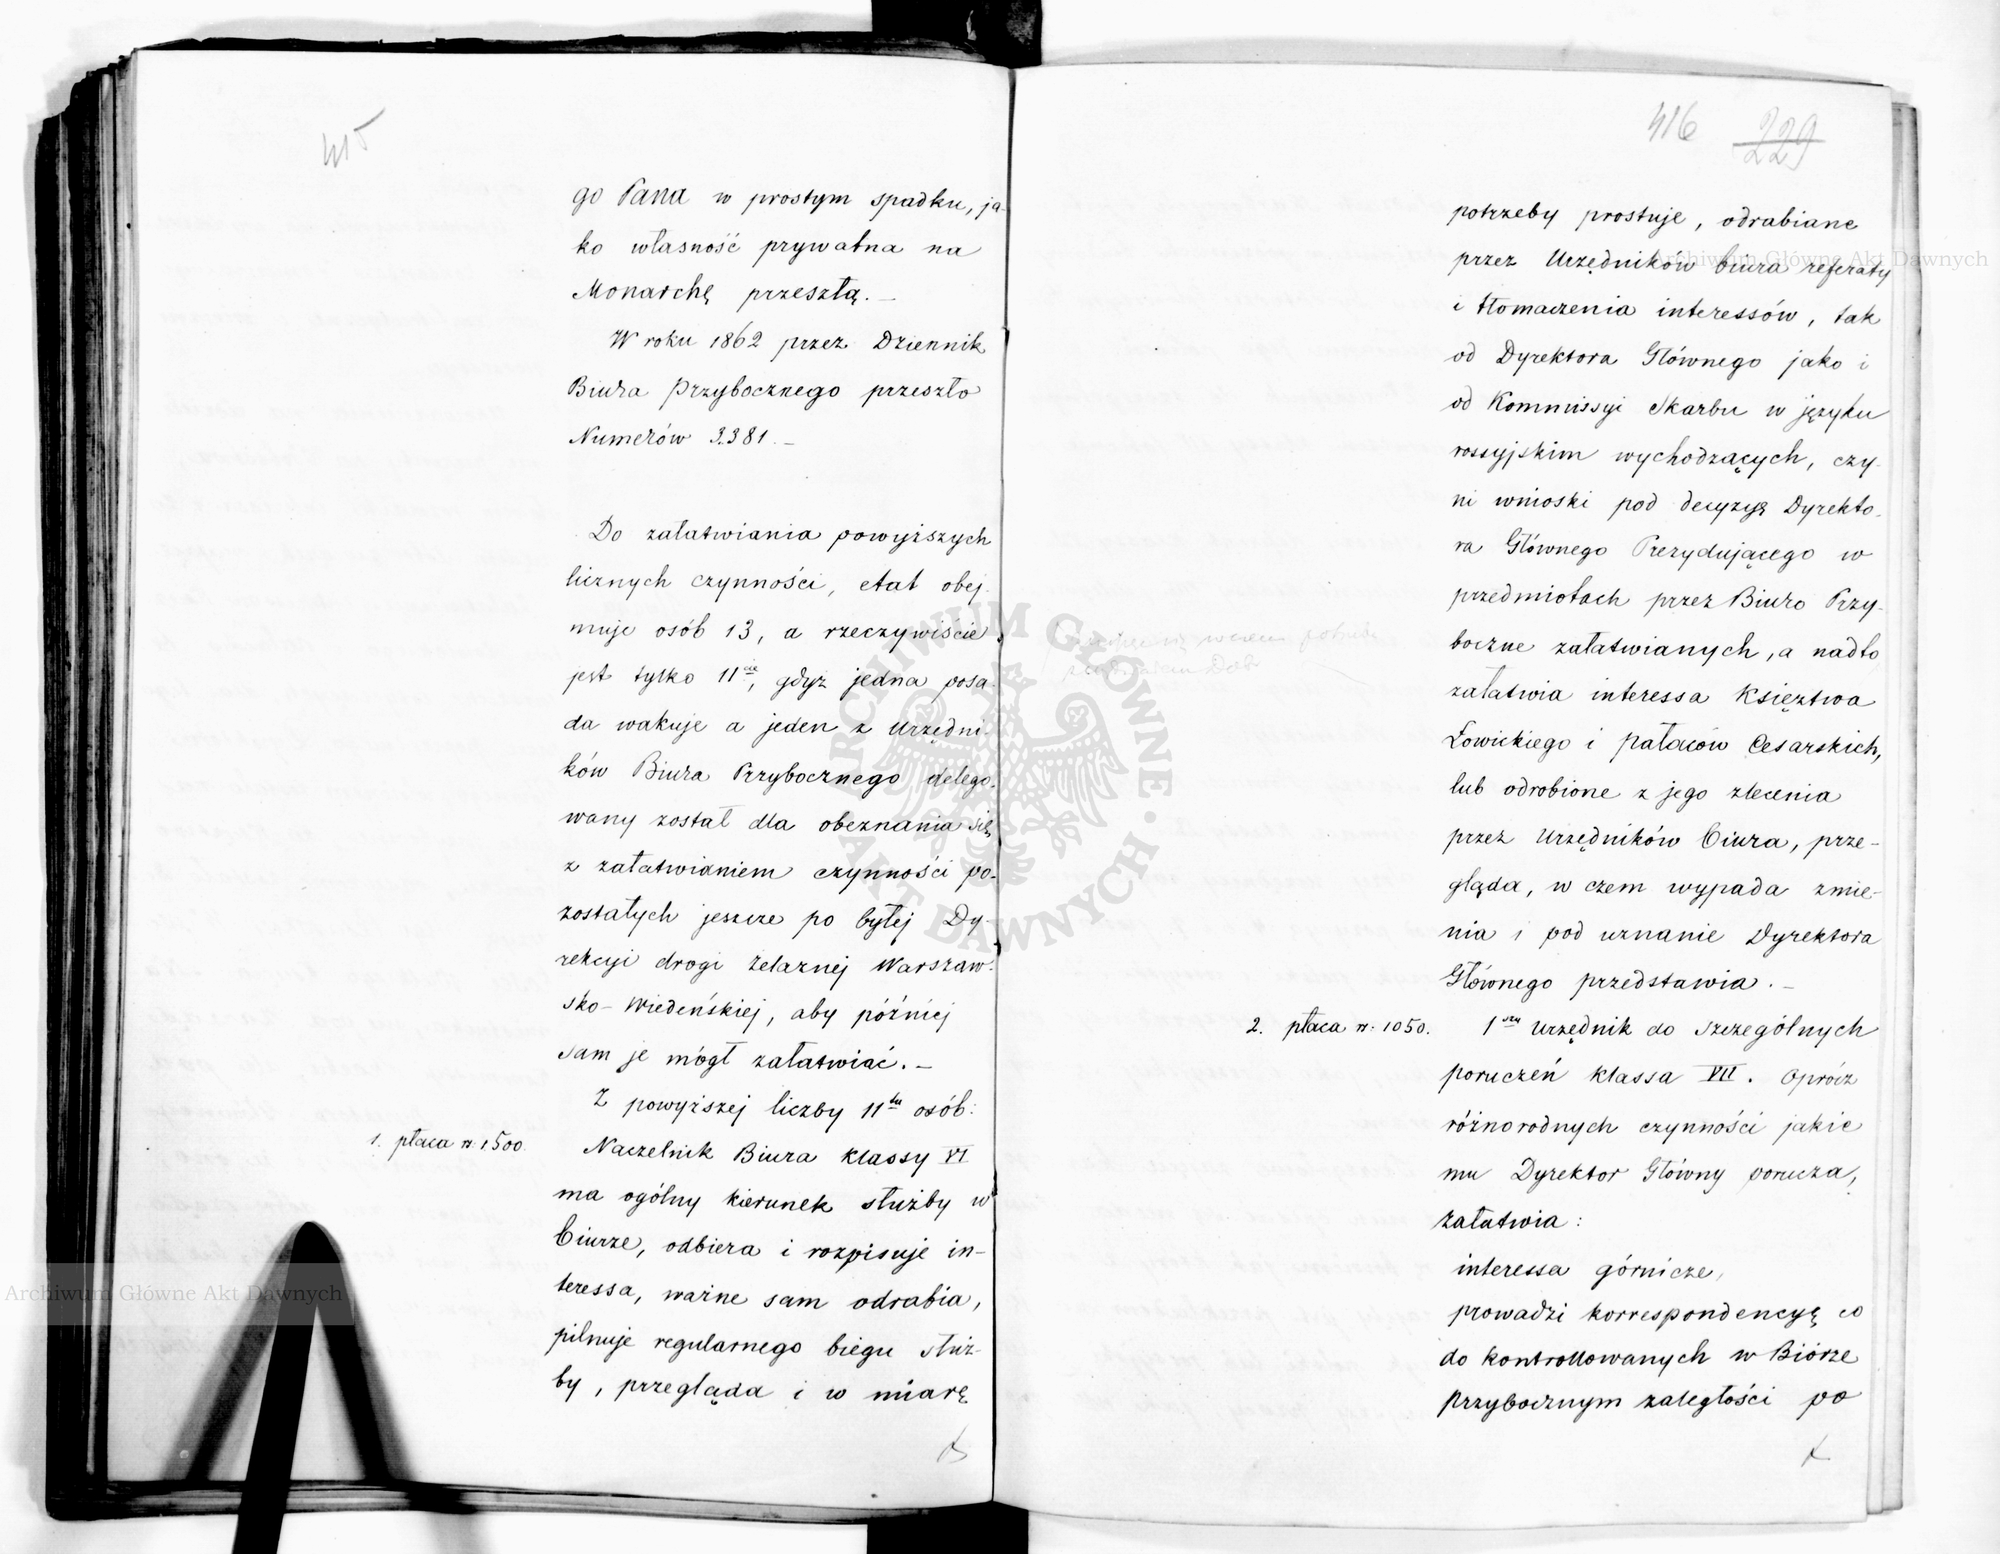 415
go Pana w prostym spadku, ja-
ko własność prywatna na
Monarchę przeszłą. —
W roku 1862 przez Dziennik
Biura Przybocznego przeszło
Numerów 3.381. —
Do załatwiania powyższych
licznych czynności, etat obej-
muje osób 13, a rzeczywiście
jest tylko 11cie, gdyż jedna posa-
da wakuje a jeden z Urzędni-
ków Biura Przybocznego delego-
wany został dla obeznania się
z załatwianiem czynności po-
zostałych jeszcze po byłej Dy-
rekcyi drogi żelaznej Warszaw-
sko-Wiedeńskiej, aby później
sam je mógł załatwiać. —
Z powyższej liczby 11tu osób:
1. płaca rs. 1500.
Naczelnik Biura klassy VI
ma ogólny kierunek służby w
Biurze, odbiera i rozpisuje in-
teressa, ważne sam odrabia,
pilnuje regularnego biegu służ-
by, przegląda i w miarę
416 229
potrzeby prostuje, odrabiane
przez Urzędników biura referaty
i tłomaczenia interessów, tak
od Dyrektora Głównego jako i
od Kommissyi Skarbu w języku
rossyjskim wychodzących, czy-
ni wnioski pod decyzyą Dyrekto-
ra Głównego Prezydującego w
przedmiotach przez Biuro Przy-
boczne załatwianych, a nadto
załatwia interessa Księztwa
Łowickiego i pałaców Cesarskich,
lub odrobione z jego zlecenia
przez Urzędników Biura, prze-
gląda, w czem wypada zmie-
nia i pod uznanie Dyrektora
Głównego przedstawia. —
2. płaca rs. 1050.
1szy Urzędnik do szczególnych
poruczeń klassa VII. Oprócz
różnorodnych czynności jakie
mu Dyrektor Główny porucza,
załatwia:
interessa górnicze,
prowadzi korrespondencyą co
do kontrollowanych w Biórze
Przybocznym zaległości po
ARCHIWUM GŁÓWNE AKT DAWNYCH
Archiwum Główne Akt Dawnych
Archiwum Główne Akt Dawnych